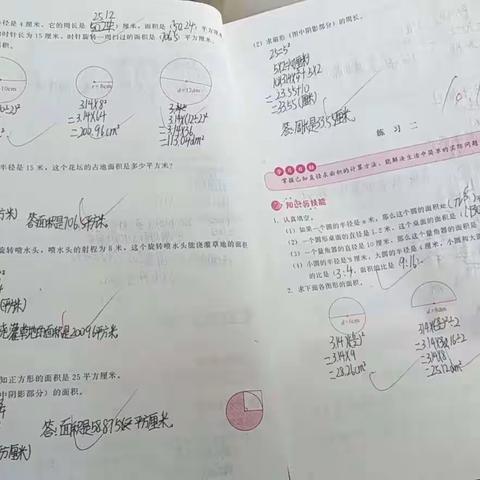 25.12
径是4厘米,它的周长是(50.24)厘米,面积是(50.24)平方厘米。
时针长为15厘米,时针旋转一周扫过的面积是(706.5)平方厘米。
面积。
r=8cm
d=12cm
3.14×8²
=3.14×64
=200.96cm²
3.14×(12÷2)²
=3.14×36
=113.04cm²
半径是15米,这个花坛的占地面积是多少平方米?
答:面积是706.5平方米。
旋转喷水头,喷水头的射程为8米,这个旋转喷水头能浇灌草地的面积
灌草地的面积是200.96平方米
知正方形的面积是25平方厘米。
中阴影部分)的面积。
答:面积是58.875平方厘米
(2)求扇形(图中阴影部分)的周长。
25=5²
=23.55+10
=33.55(厘米)
答:周长是33.55厘米。
练习二
学习目标
掌握已知直径求面积的计算方法,能解决生活中简单的实际问题
知识与技能
1. 认真填空。
(1)如果一个圆的半径是n米,那么这个圆的面积是
(2)一个圆形桌面的直径是1.2米,这个桌面的面积是
(3)一个量角器的直径是10厘米,那么这个量角器的面积是
(4)小圆的半径是3厘米,大圆的半径是4厘米,小圆和大圆
的比是(3:4),面积的比是(9:16)。
2. 求下面各图形的面积。
d=6cm
d=8cm
=3.14×9
=28.26cm²
=3.14×16÷2
=3.14×8
=25.12cm²